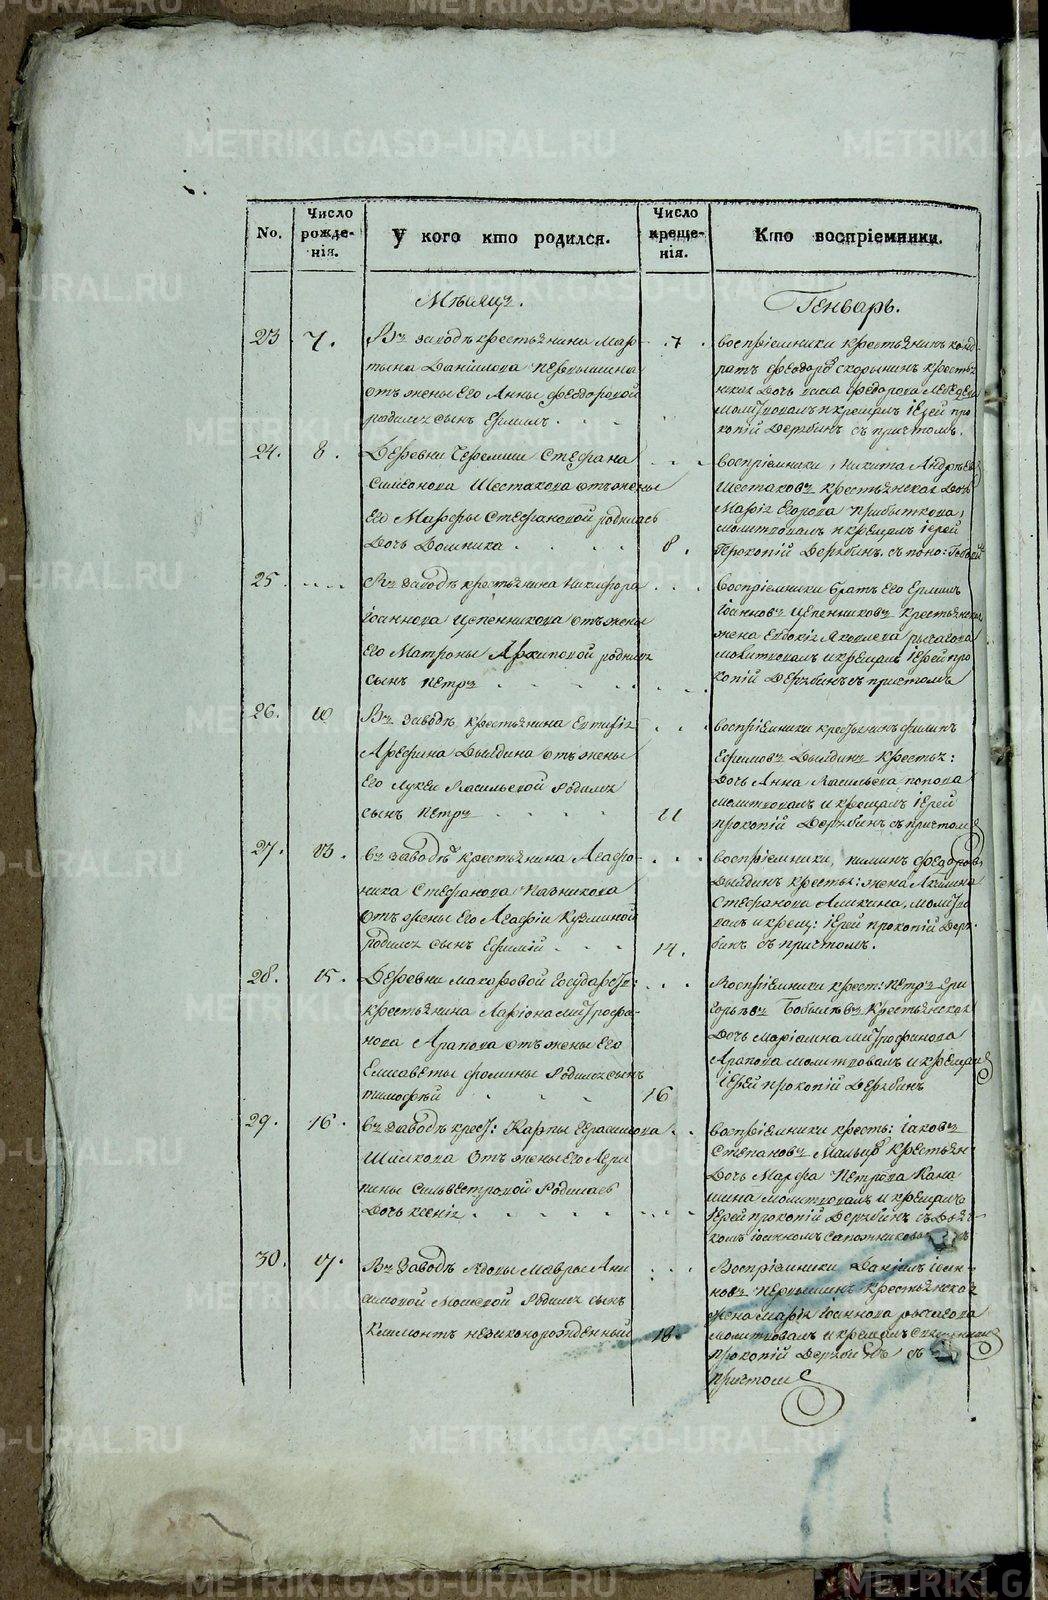 No.
Число рожде- нія.
У кого кто родился.
Число креще- нія.
Кто воспріемники.
Мѣсяцъ.
Генварь.
23
7.
Въ заводѣ крестьянина Мар-
тына Данилова Первышина
отъ жены его Анны Феодоровой
родился сынъ Ермилъ
7
воспріемники крестьянинъ конд-
ратъ Феодоров Скорынинъ крестья
нская дочь Федорова
молитвовалъ и крещалъ іерей про
копій Дерябинъ съ причтомъ.
24.
8.
Деревни Черемши Стефана
Симеонова Шестакова отъ жены
его Марфы Стефановой родилась
дочь Домника
8.
воспріемники, Никита Андреев
Шестаковъ крестьянская дочь
Марія Егорова Прибыткова,
молитвовалъ и крещалъ іерей
Прокопій Дерябинъ. с поно:
25
Въ заводѣ крестьянина Никифора
іоаннова Щепенникова отъ жены
его Матроны Архиповой родился
сынъ Петръ
воспріемники братъ его Ермилъ
іоанновъ Щепенниковъ крестьянская
жена Евдокія Яковлева рычагова
молитвовалъ и крещалъ іерей про
копій Дерябинъ съ причтомъ
26.
10
Въ заводѣ крестьянина Евтифія
Арефина Дылдина отъ жены
его Лукеи Васильевой родился
сынъ Петръ
11
воспріемники крестьянинъ филипъ
Ефимовъ Дылдинъ крестья:
дочь Анна Васильева попова
молитвовалъ и крещалъ іерей
прокопій Дерябинъ съ причтомъ
27.
13.
въ заводѣ крестьянина Агафо-
ника Стефанова Пазникова
отъ жены его Агафіи Кузминой
родился сынъ Ефимій
14.
воспріемники, пименъ Федоровъ
Дылдинъ кресты: жена Акилина
Стефанова Аликина, молитво
валъ и крещ: іерей прокопій Деря-
бинъ съ причтомъ.
28.
15.
Деревни макаровой государст:
крестьянина Ларіона митрофа-
нова Арапова отъ жены его
Елисаветы фомины родился сынъ
тимофѣй
16
Воспріемники крест: Петръ Гри
горьевъ Бобылевъ крестьянская
дочь маріамна митрофанова
Арапова молитвовалъ и крещалъ
іерей прокопій Дерябинъ
29.
16.
въ заводѣ крест: Карпы Герасимова
отъ жены его Агри
пины Сильвестровой родилась
дочь ксенія
воспріемники кресть: іаковъ
Степановъ крестьян
дочь Марфа Петрова Кана
шина молитвовалъ и крещалъ
іерей прокопій Дерябинъ съ дьяч-
комъ іоанномъ сапожниковы
30.
17.
Въ заводѣ вдовы Мавры Ани
симовой родился сынъ
Климонтъ незаконорожденный
18.
Воспріемники Данилъ іоан-
новъ первышинъ крестьянская
жена марія іоаннова рычагова
молитвовалъ и крещалъ
прокопій Дерябинъ съ
причтомъ
METRIKI.GASO-URAL.RU